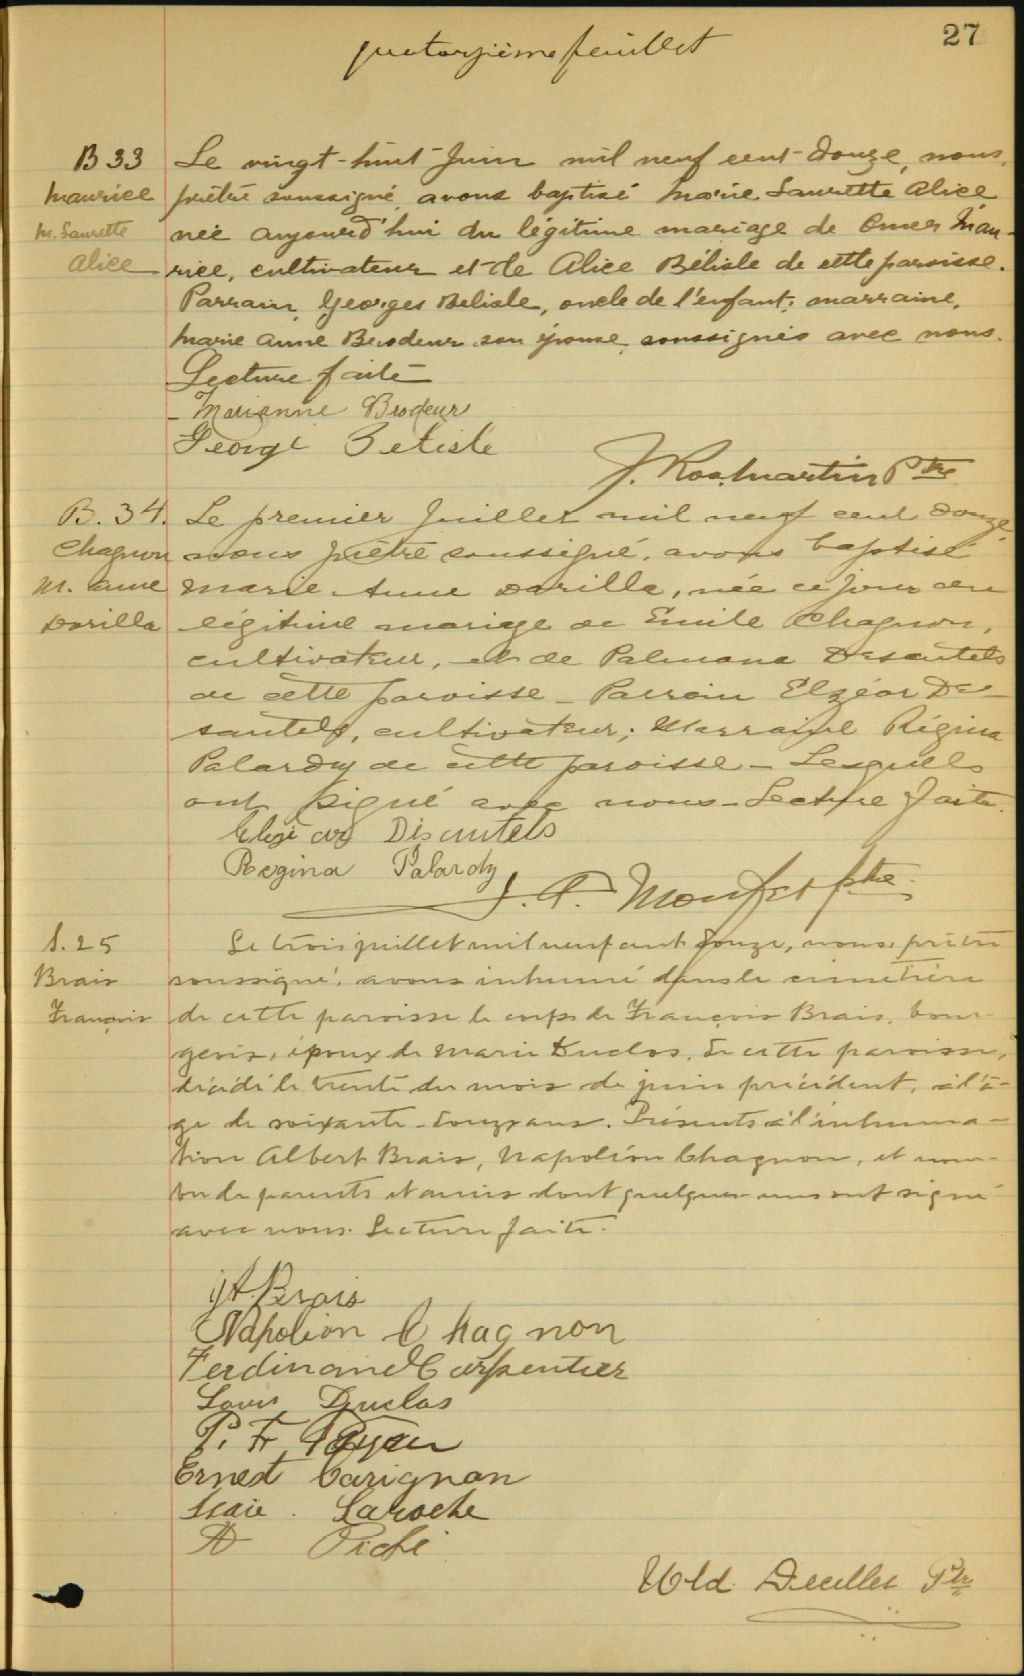 27
quatorzième feuillet
B 33
Maurice
M. Laurette
Alice
Le vingt-huit Juin mil neuf cent douze, nous,
prêtre soussigné, avons baptisé Marie Laurette Alice
née aujourd'hui du légitime mariage de Omer Mau-
rice, cultivateur et de Alice Bélisle de cette paroisse.
Parrain, Georges Belisle, oncle de l'enfant; marraine,
Marie Anne Brodeur son épouse, soussignés avec nous.
Lecture faite
Marianne Brodeur
George Belisle
J. Martin Ptre
B. 34.
Chagnon
M. Anne
Dorilla
Le premier Juillet mil neuf cent douze,
nous prêtre soussigné, avons baptisé
Marie Anne Dorilla, née ce jour du
légitime mariage de Emile Chagnon,
cultivateur, et de Palmana Desautels
de cette paroisse - Parrain Elzéar De-
sautels, cultivateur; Marraine Régina
Palardy de cette paroisse - Lesquels
ont signé avec nous - Lecture faite.
Elzear Desautels
Regina Palardy
J. A. Monfet ptre
S. 25
Brais
François
Le trois juillet mil neuf cent douze, nous, prêtre
soussigné, avons inhumé dans le cimetière
de cette paroisse le corps de François Brais, bour-
geois, époux de Marie Duclos, de cette paroisse,
décédé le trente du mois de juin précédent, à l'â-
ge de soixante-douze ans. Présents à l'inhuma-
tion Albert Brais, Napoléon Chagnon, et nom-
bre de parents et amis dont quelques-uns ont signé
avec nous. Lecture faite.
Brais
Napoléon Chagnon
Ferdinand Carpentier
Louis Duclos
P. F. Payan
Ernest Carignan
Isaie Laroche
A Piché
Uld. Decelles Ptr